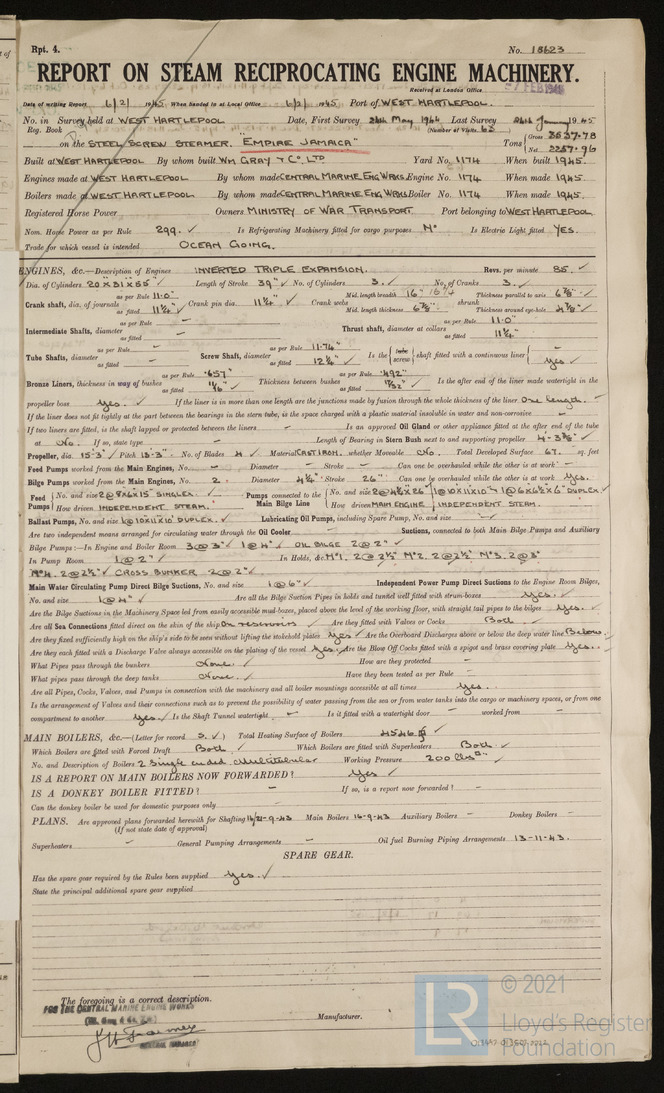 Rpt. 4. No. 18623
REPORT ON STEAM RECIPROCATING ENGINE MACHINERY.
Received at London Office 7 FEB 1945
Date of writing Report 6/2/ 1945 When handed in at Local Office 6/2/ 1945 Port of WEST HARTLEPOOL.
No. in Survey held at WEST HARTLEPOOL Date, First Survey 26th May 1944 Last Survey 26th Jan 1945
Reg. Book (Number of Visits 63)
on the STEEL SCREW STEAMER. "EMPIRE JAMAICA" Tons Gross 3537.78
Net 2257.96
Built at WEST HARTLEPOOL By whom built WM GRAY & CO. LTD Yard No. 1174 When built 1945.
Engines made at WEST HARTLEPOOL By whom made CENTRAL MARINE ENG WRKS Engine No. 1174 When made 1945.
Boilers made at WEST HARTLEPOOL By whom made CENTRAL MARINE ENG WRKS Boiler No. 1174 When made 1945.
Registered Horse Power Owners MINISTRY OF WAR TRANSPORT. Port belonging to WEST HARTLEPOOL
Nom. Horse Power as per Rule 299. ✓ Is Refrigerating Machinery fitted for cargo purposes No Is Electric Light fitted YES.
Trade for which vessel is intended OCEAN GOING.
ENGINES, &c.—Description of Engines INVERTED TRIPLE EXPANSION. Revs. per minute 85.
Dia. of Cylinders 20 X 31 X 55 ✓ Length of Stroke 39" ✓ No. of Cylinders 3. ✓ No. of Cranks 3. ✓
Crank shaft, dia. of journals as per Rule 11.0" as fitted 11¼" ✓ Crank pin dia. 11¼" ✓ Crank webs Mid. length breadth 16" Mid. length thickness 6⅞" shrunk Thickness parallel to axis 6⅞" Thickness around eye-hole 4⅞"
Intermediate Shafts, diameter as per Rule - as fitted - Thrust shaft, diameter at collars as per Rule 11.0" as fitted 11¼"
Tube Shafts, diameter as per Rule - as fitted - Screw Shaft, diameter as per Rule 11.74" as fitted 12¼" Is the tube screw shaft fitted with a continuous liner Yes ✓
Bronze Liners, thickness in way of bushes as per Rule .657" as fitted 11/16" Thickness between bushes as per Rule .492" as fitted 17/32" Is the after end of the liner made watertight in the
propeller boss Yes. ✓ If the liner is in more than one length are the junctions made by fusion through the whole thickness of the liner One length.
If the liner does not fit tightly at the part between the bearings in the stern tube, is the space charged with a plastic material insoluble in water and non-corrosive -
If two liners are fitted, is the shaft lapped or protected between the liners - Is an approved Oil Gland or other appliance fitted at the after end of the tube
at No. If so, state type - Length of Bearing in Stern Bush next to and supporting propeller 4-3⅜" ✓
Propeller, dia. 15'-3" Pitch 13-3" No. of Blades 4 ✓ Material CAST IRON. whether Moveable No. Total Developed Surface 67. sq. feet
Feed Pumps worked from the Main Engines, No. - Diameter - Stroke - Can one be overhauled while the other is at work -
Bilge Pumps worked from the Main Engines, No. 2. Diameter 4¼" Stroke 26" Can one be overhauled while the other is at work Yes.
Feed Pumps No. and size 2@9X6X15 SIMPLEX. How driven INDEPENDENT STEAM. Pumps connected to the Main Bilge Line No. and size 2@4¼ X 26 /1@10X11X10 1@6X6½X6" DUPLEX. How driven MAIN ENGINE INDEPENDENT STEAM.
Ballast Pumps, No. and size 1@10X11X10 DUPLEX. ✓ Lubricating Oil Pumps, including Spare Pump, No. and size -
Are two independent means arranged for circulating water through the Oil Cooler - Suctions, connected to both Main Bilge Pumps and Auxiliary
Bilge Pumps :—In Engine and Boiler Room 3@3" 1@4" OIL BILGE 2@2" ✓
In Pump Room 1@2" ✓ In Holds, &c No1. 2@2½" No2. 2@2½" No3. 2@3"
No4. 2@2½" ✓ CROSS BUNKER 2@2" ✓
Main Water Circulating Pump Direct Bilge Suctions, No. and size 1@6" ✓ Independent Power Pump Direct Suctions to the Engine Room Bilges,
No. and size 1@4" ✓ Are all the Bilge Suction Pipes in holds and tunnel well fitted with strum-boxes Yes. ✓
Are the Bilge Suctions in the Machinery Space led from easily accessible mud-boxes, placed above the level of the working floor, with straight tail pipes to the bilges Yes. ✓
Are all Sea Connections fitted direct on the skin of the ship On reservoirs ✓ Are they fitted with Valves or Cocks Both ✓
Are they fixed sufficiently high on the ship's side to be seen without lifting the stokehold plates Yes ✓ Are the Overboard Discharges above or below the deep water line Below ✓
Are they each fitted with a Discharge Valve always accessible on the plating of the vessel Yes. ✓ Are the Blow Off Cocks fitted with a spigot and brass covering plate Yes. ✓
What Pipes pass through the bunkers None. ✓ How are they protected -
What pipes pass through the deep tanks None. ✓ Have they been tested as per Rule -
Are all Pipes, Cocks, Valves, and Pumps in connection with the machinery and all boiler mountings accessible at all times Yes. ✓
Is the arrangement of Valves and their connections such as to prevent the possibility of water passing from the sea or from water tanks into the cargo or machinery spaces, or from one
compartment to another Yes ✓ Is the Shaft Tunnel watertight - Is it fitted with a watertight door - worked from -
MAIN BOILERS, &c.—(Letter for record S. ✓) Total Heating Surface of Boilers 4546
Which Boilers are fitted with Forced Draft Both ✓ Which Boilers are fitted with Superheaters Both ✓
No. and Description of Boilers 2 Single ended Multitubular Working Pressure 200 lbs ✓
IS A REPORT ON MAIN BOILERS NOW FORWARDED? Yes ✓
IS A DONKEY BOILER FITTED? - If so, is a report now forwarded? -
Can the donkey boiler be used for domestic purposes only -
PLANS. Are approved plans forwarded herewith for Shafting 16/21-9-43 Main Boilers 16-9-43 Auxiliary Boilers - Donkey Boilers -
(If not state date of approval)
Superheaters - General Pumping Arrangements - Oil fuel Burning Piping Arrangements 13-11-43.
SPARE GEAR.
Has the spare gear required by the Rules been supplied Yes. ✓
State the principal additional spare gear supplied
The foregoing is a correct description.
FOR THE CENTRAL MARINE ENGINE WORKS
GENERAL MANAGER
Manufacturer.
© 2021
LR Lloyd's Register
Foundation